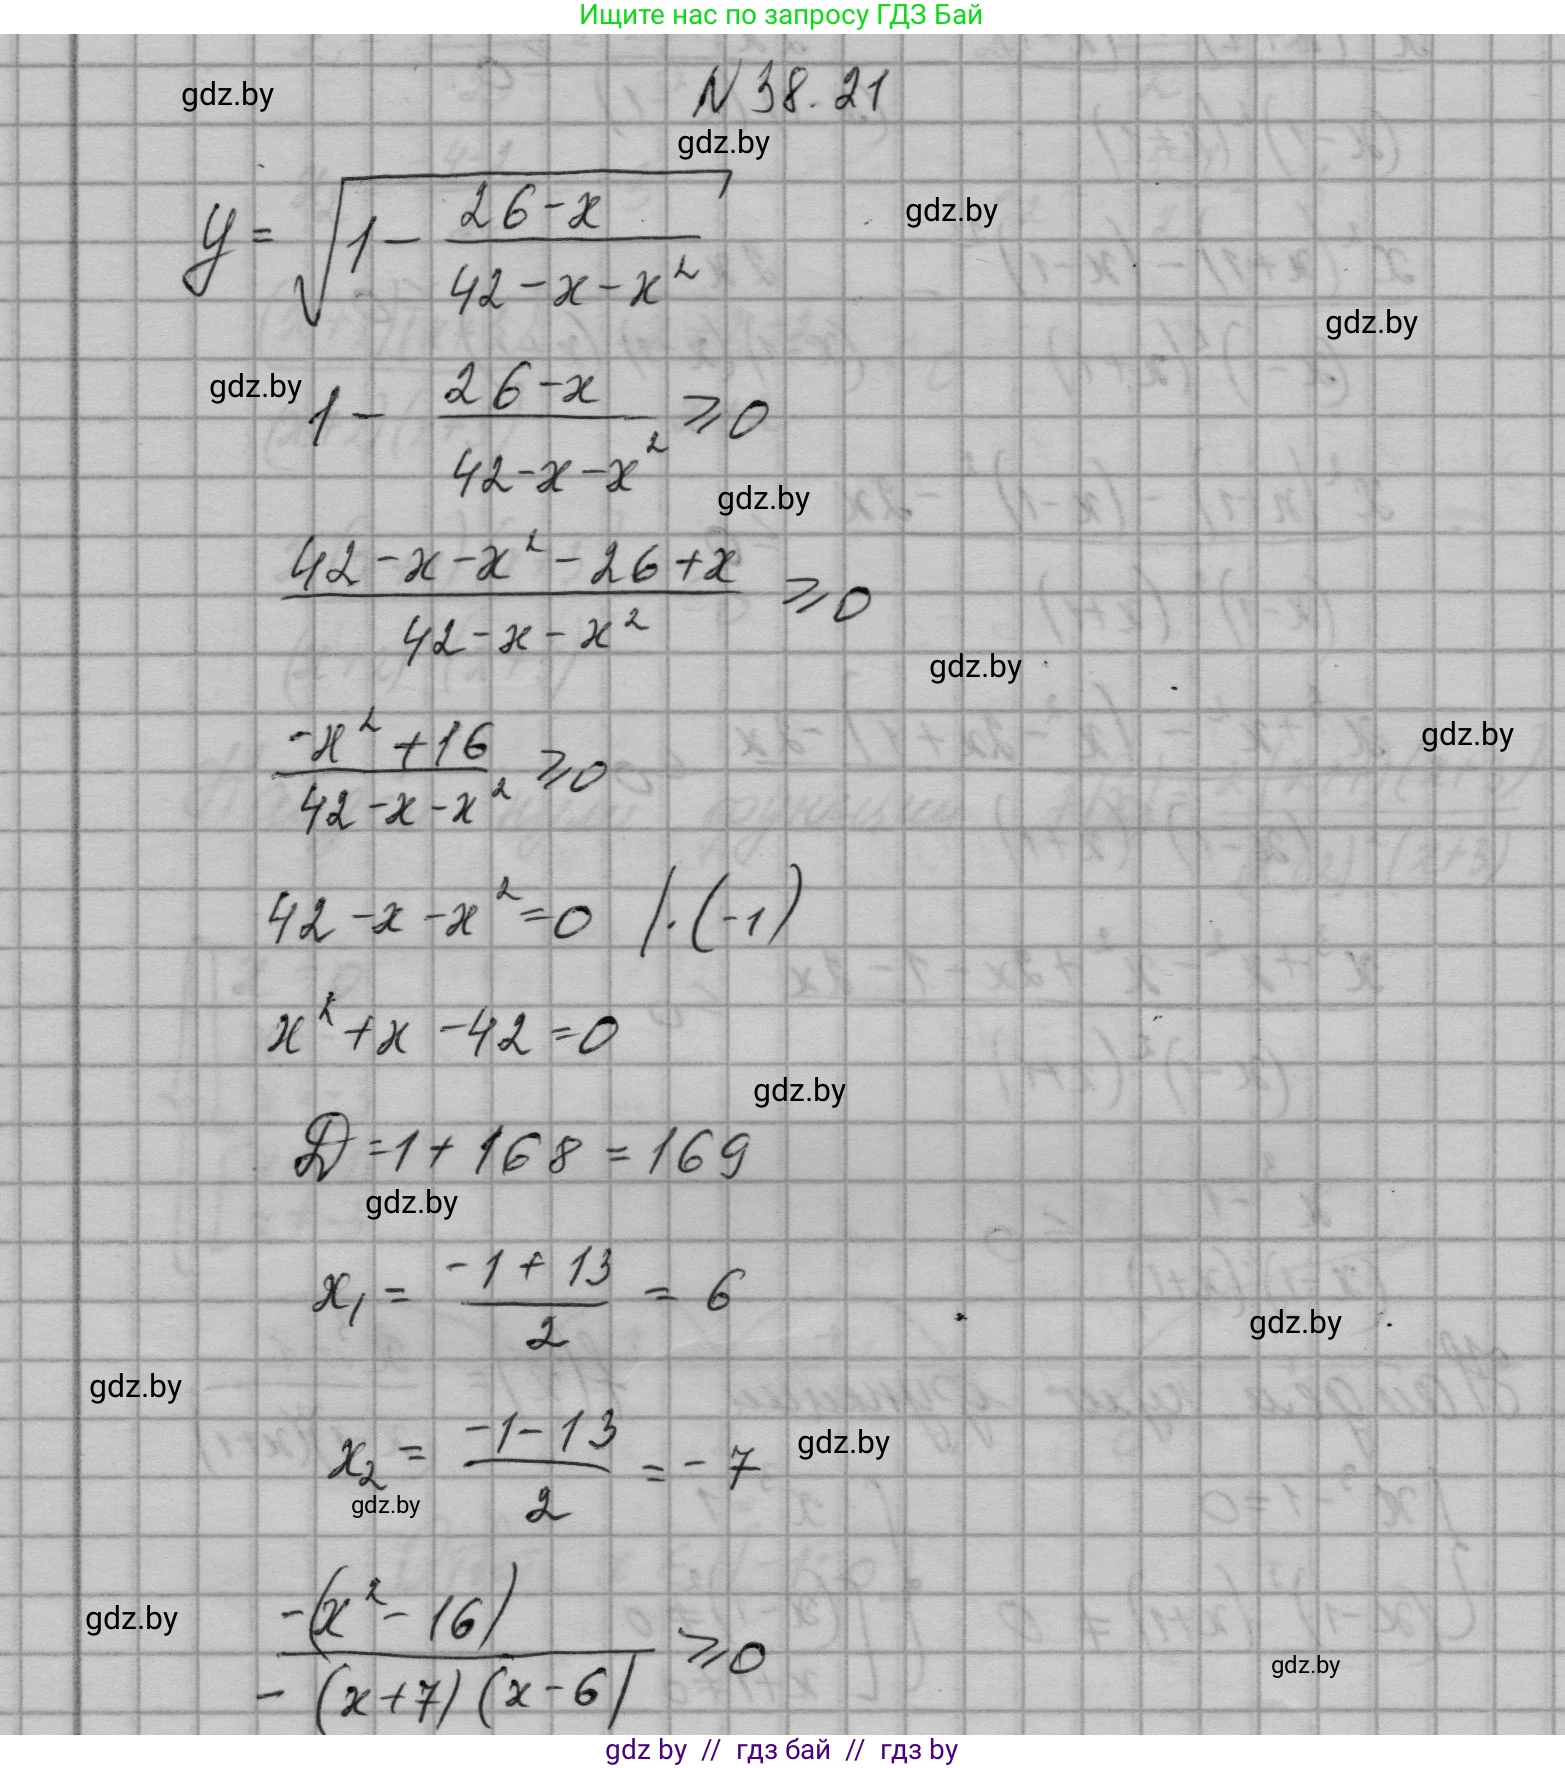 Ищите нас по запросу ГДЗ Бай
N 38.21
gdz.by
gdz.by
y = √(1 - (26 - x)/(42 - x - x²))
gdz.by
gdz.by
gdz.by
1 - (26 - x)/(42 - x - x²) ⩾ 0
gdz.by
(42 - x - x² - 26 + x)/(42 - x - x²) ⩾ 0
gdz.by
(-x² + 16)/(42 - x - x²) ⩾ 0
gdz.by
42 - x - x² = 0 /·(-1)
x² + x - 42 = 0
gdz.by
D = 1 + 168 = 169
gdz.by
x₁ = (-1 + 13)/2 = 6
gdz.by
gdz.by
x₂ = (-1 - 13)/2 = -7
gdz.by
gdz.by
(-(x² - 16))/(-(x + 7)(x - 6)) ⩾ 0
gdz.by
gdz.by
gdz by // гдз бай // гдз by